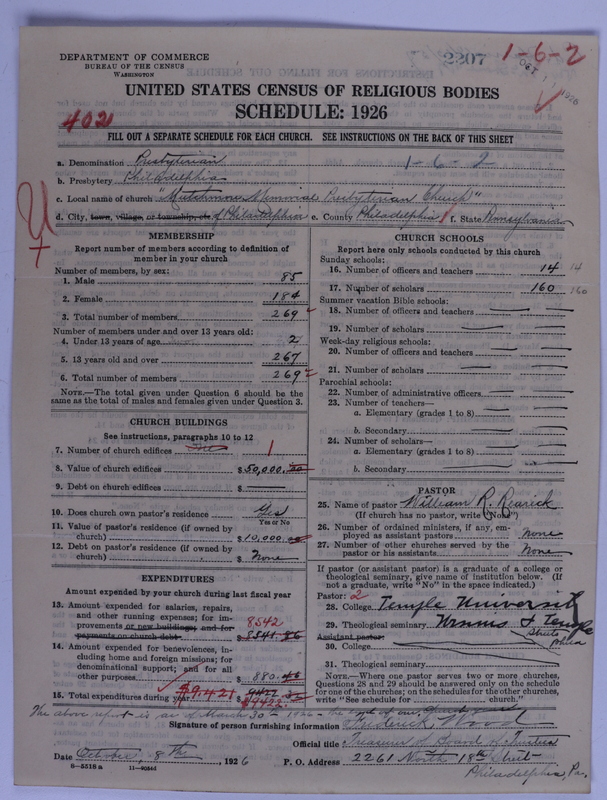 1-6-2
DEPARTMENT OF COMMERCE
BUREAU OF THE CENSUS
WASHINGTON
OCT 1926
UNITED STATES CENSUS OF RELIGIOUS BODIES
SCHEDULE: 1926
402
FILL OUT A SEPARATE SCHEDULE FOR EACH CHURCH. SEE INSTRUCTIONS ON THE BACK OF THIS SHEET
a. Denomination Presbyterian 1-6-2
b. Presbytery Philadelphia
c. Local name of church " Memorial Presbyterian Church"
d. City, town, village, or township, etc of Philadelphia e. County Philadelphia f. State Pennsylvania
MEMBERSHIP
Report number of members according to definition of
member in your church
Number of members, by sex:
1. Male 85
2. Female 184
3. Total number of members 269
Number of members under and over 13 years old:
4. Under 13 years of age 2
5. 13 years old and over 267
6. Total number of members 269
NOTE.—The total given under Question 6 should be
same as the total of males and females given under Question 3.
CHURCH BUILDINGS
See instructions, paragraphs 10 to 12
7. Number of church edifices 1
8. Value of church edifices $50,000.00
9. Debt on church edifices $
10. Does church own pastor's residence? Yes
Yes or No
11. Value of pastor's residence (if owned by
church) $10,000.00
12. Debt on pastor's residence (if owned by
church) $ None
EXPENDITURES
Amount expended by your church during last fiscal year
13. Amount expended for salaries, repairs,
and other running expenses; for im-
provements or new buildings; and for 8542
payments on church debt $8541.86
14. Amount expended for benevolences, in-
cluding home and foreign missions; for
denominational support; and for all
other purposes 880.
15. Total expenditures during year $9421 $9422.
$9422
CHURCH SCHOOLS
Report here only schools conducted by this church
Sunday schools:
16. Number of officers and teachers 14 14
17. Number of scholars 160 160
Summer vacation Bible schools:
18. Number of officers and teachers
19. Number of scholars
Week-day religious schools:
20. Number of officers and teachers
21. Number of scholars
Parochial schools:
22. Number of administrative officers
23. Number of teachers—
a. Elementary (grades 1 to 8)
b. Secondary
24. Number of scholars—
a. Elementary (grades 1 to 8)
b. Secondary
PASTOR
25. Name of pastor William R. Rearick
(If church has no pastor, write "None")
26. Number of ordained ministers, if any, em-
ployed as assistant pastors None
27. Number of other churches served by the
pastor or his assistants None
If pastor (or assistant pastor) is a graduate of a college or
theological seminary, give name of institution below. (If
not a graduate, write "No" in the space indicated.)
Pastor: 2
28. College Temple University
29. Theological seminary Ursinus & Temple
Assistant pastor: Phila
30. College
31. Theological seminary
NOTE.—Where one pastor serves two or more churches,
Questions 28 and 29 should be answered only on the schedule
for one of the churches; on the schedules for the other churches,
write "See schedule for church."
The above report is as of March 30th 1926 - the end of our
Signature of person furnishing information Frederick Wood
Official title Treasurer of Board of Trustees
Date October 8th, 1926 P. O. Address 2261 North 18th Street
Philadelphia, Pa.
8-5518a 11-9064d